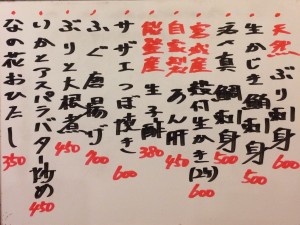 天然 ぶり刺身 600
生かじき鮪刺身 500
真鯛刺身 500
宮城産 殻付生かき(2ケ) 600
自家製 あん肝 450
能登産 生子酢 380
サザエつぼ焼き 600
ふぐ 唐揚げ 700
ぶりと大根煮 450
いかとアスパラバター炒め 450
なの花おひたし 350